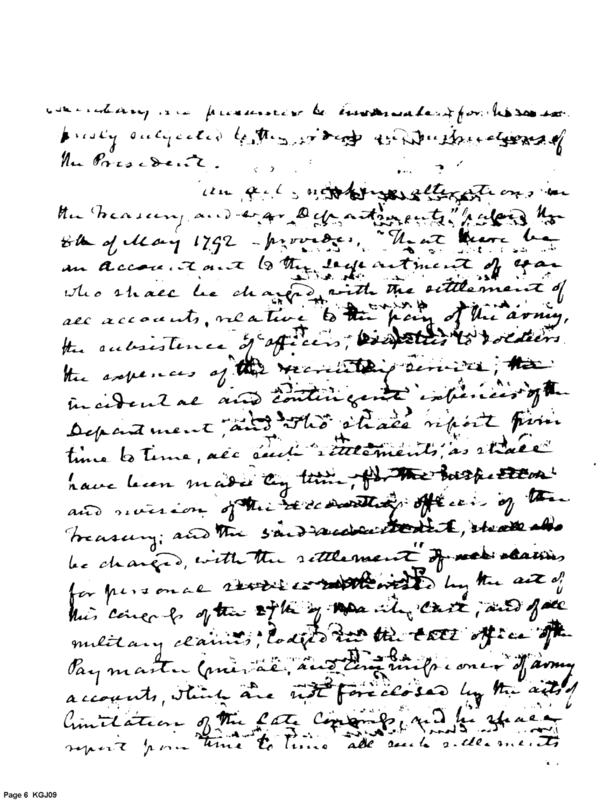 presumed to be for
subjected to the orders and instructions of
the President.
"An act making alterations in
the Treasury and war Departments," passed the
8th of May 1792 - provides, "That there be
an Accountant to the department of war
who shall be charged, with the settlement of
all accounts, relative to the pay of the army,
the subsistence of officers, bounties to soldiers
the expences of the recruiting service; the
incidental and contingent expences of the
Department, and who shall report from
time to time, all such settlements, as shall
have been made by him, for the inspection
and revision of the accounting officers of the
Treasury; and the said accountant, shall also
be charged, with the settlement of all claims
for personal service authorised by the act of
this congress of the 27th of March last, and of all
military claims, lodged in the late office of the
Paymaster General, and commissioner of army
accounts, which are not foreclosed by the acts of
limitation of the late congress, and he shall
report from time to time all such settlements
Page 6 KGJ09